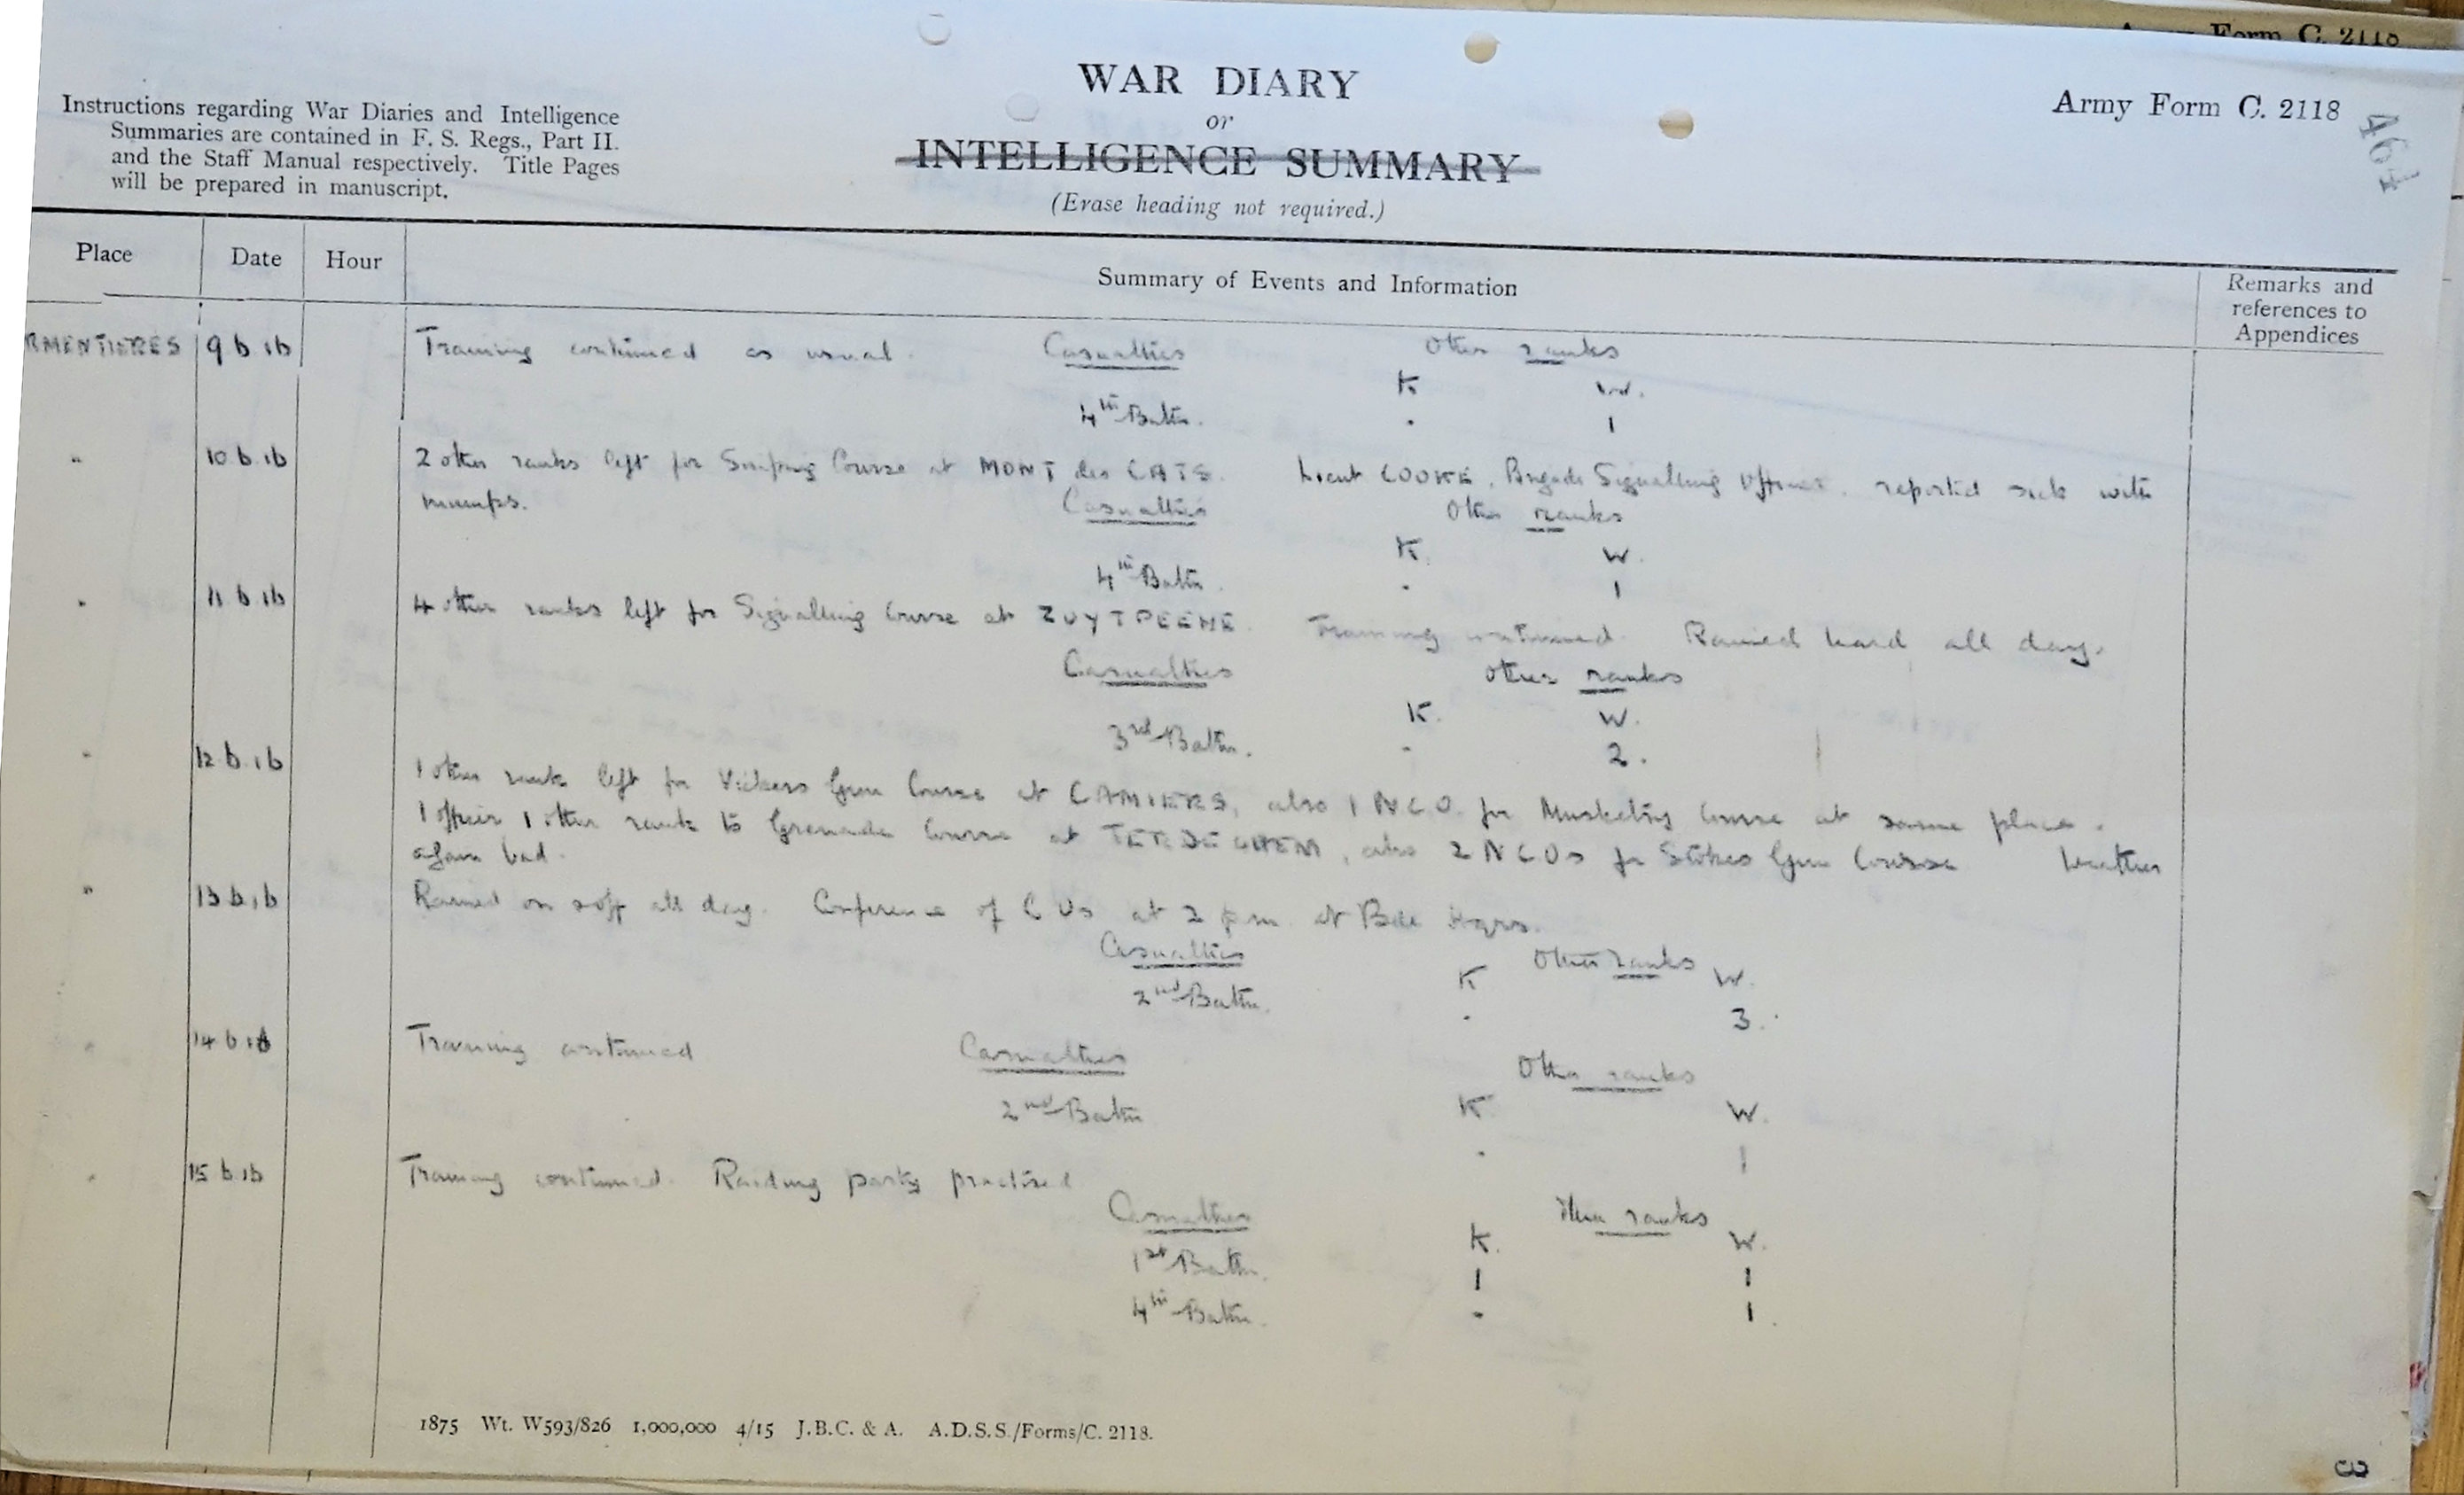 Army Form C. 2118
WAR DIARY
or
INTELLIGENCE SUMMARY
(Erase heading not required.)
Instructions regarding War Diaries and Intelligence
Summaries are contained in F. S. Regs., Part II.
and the Staff Manual respectively. Title Pages
will be prepared in manuscript.
Army Form C. 2118
461
Place Date Hour Summary of Events and Information Remarks and
references to
Appendices
RMENTIERES 9 6 16 Training continued as usual. Casualties Other ranks
K W.
4th Battn. . 1
" 10 6 16 2 other ranks left for Sniping Course at MONT des CATS. Lieut COOKE, Brigade Signalling Officer, reported sick with
mumps. Casualties Other ranks
K W.
4th Battn. . 1
" 11 6 16 4 other ranks left for Signalling Course at ZUYTPEENE. Training continued. Rained hard all day.
Casualties Other ranks
K. W.
3rd Battn. - 2.
" 12 6 16 1 other rank left for Vickers Gun Course at CAMIERS, also 1 NCO. for Musketry Course at same place.
1 officer 1 other rank to Grenade Course at TERDEGHEM, also 2 NCOs for Stokes Gun Course Weather
again bad.
" 13 6 16 Rained on & off all day. Conference of C Os at 2 pm. at Bde Hqrs.
Casualties Other ranks
K W.
2nd Battn. . 3.
" 14 6 16 Training continued Casualties Other ranks
2nd Battn K W.
. 1
" 15 6 16 Training continued. Raiding party practised
Casualties Other ranks
K. W.
1st Battn. 1 1
4th Battn. - 1.
1875 Wt. W593/826 1,000,000 4/15 J.B.C. & A. A.D.S.S./Forms/C. 2118.
3